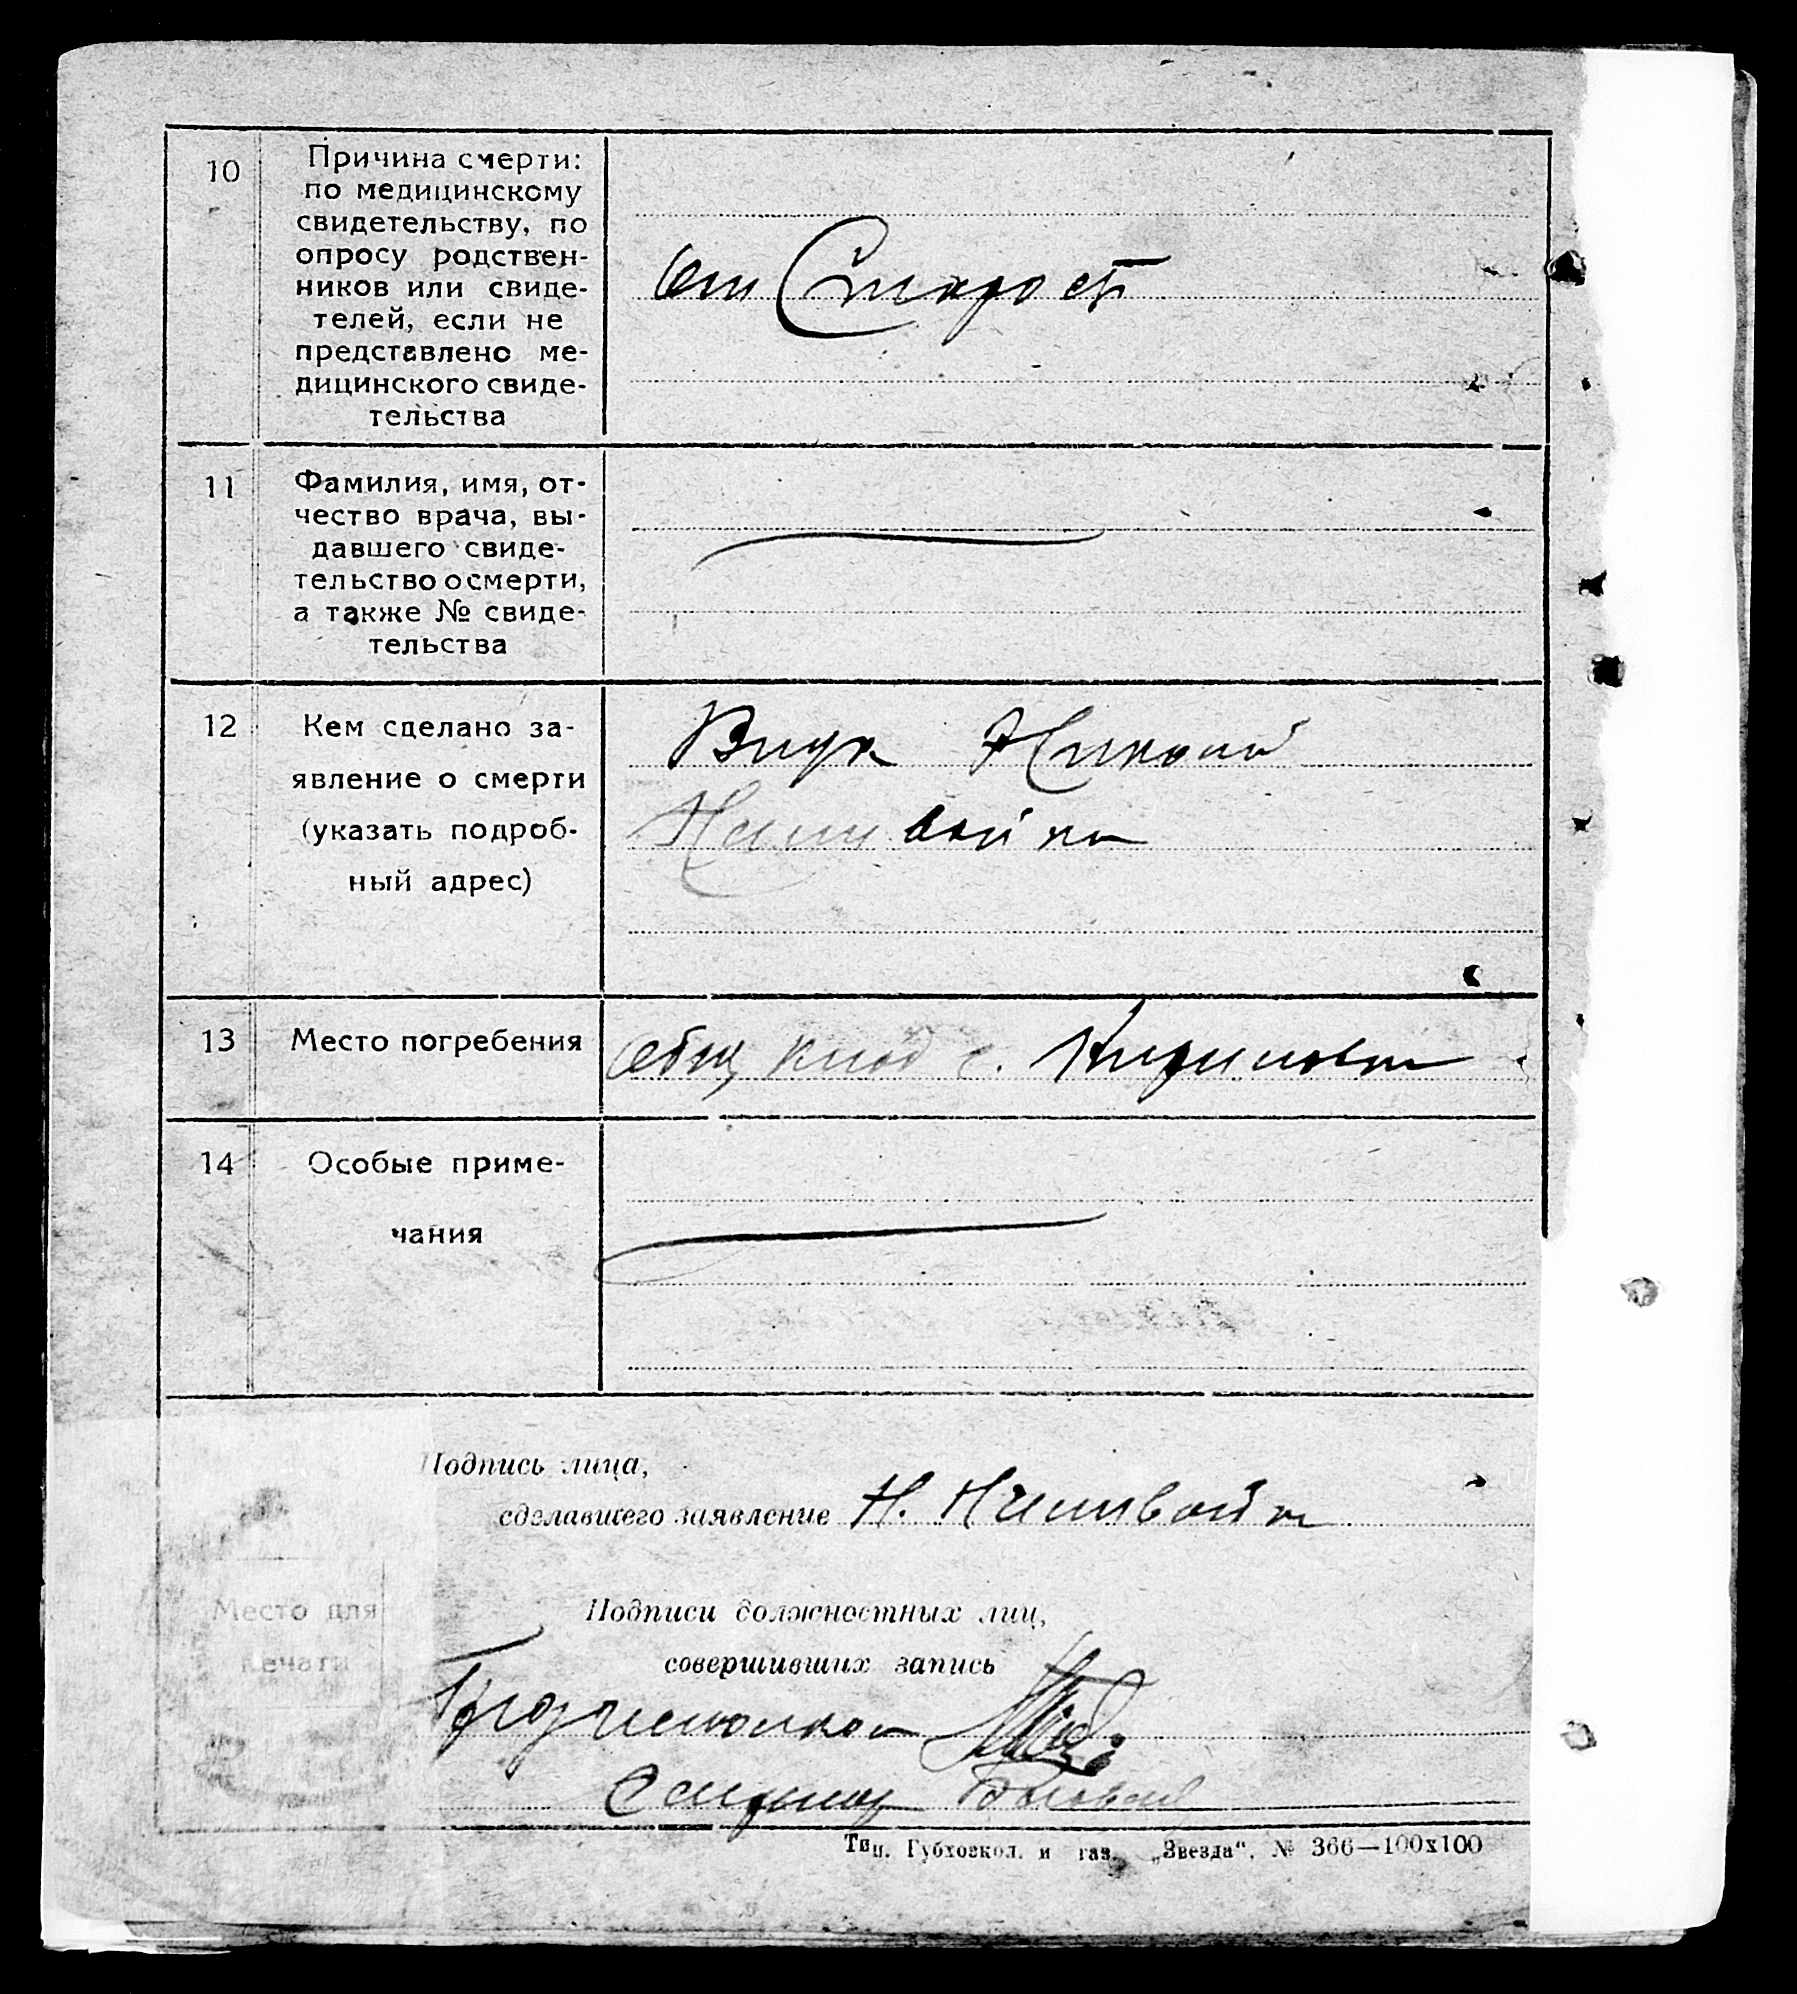 10
Причина смерти:
по медицинскому
свидетельству, по
опросу родствен-
ников или свиде-
телей, если не
представлено ме-
дицинского свиде-
тельства
от Старост
11
Фамилия, имя, от-
чество врача, вы-
давшего свиде-
тельство о смерти,
а также № свиде-
тельства
12
Кем сделано за-
явление о смерти
(указать подроб-
ный адрес)
Внук Николай
13
Место погребения
общ клад с.
14
Особые приме-
чания
Подпись лица,
сделавшего заявление Н.
Место для
печати
Подписи должностных лиц,
совершивших запись
Секретар
Тип. Губхозкол. и газ. „Звезда“. № 366—100х100